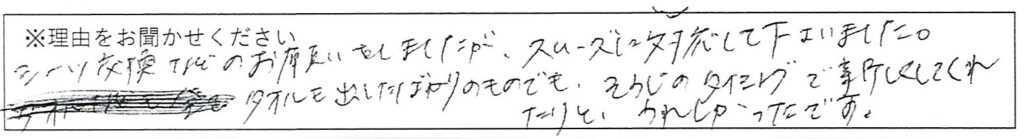 ※理由をお聞かせください
シーツ交換などのお願いをしましたが、スムーズに対応して下さいました。
タオルも出したばかりのものでも、そうじのタイミングで新しくしてくれ
たりと、うれしかったです。